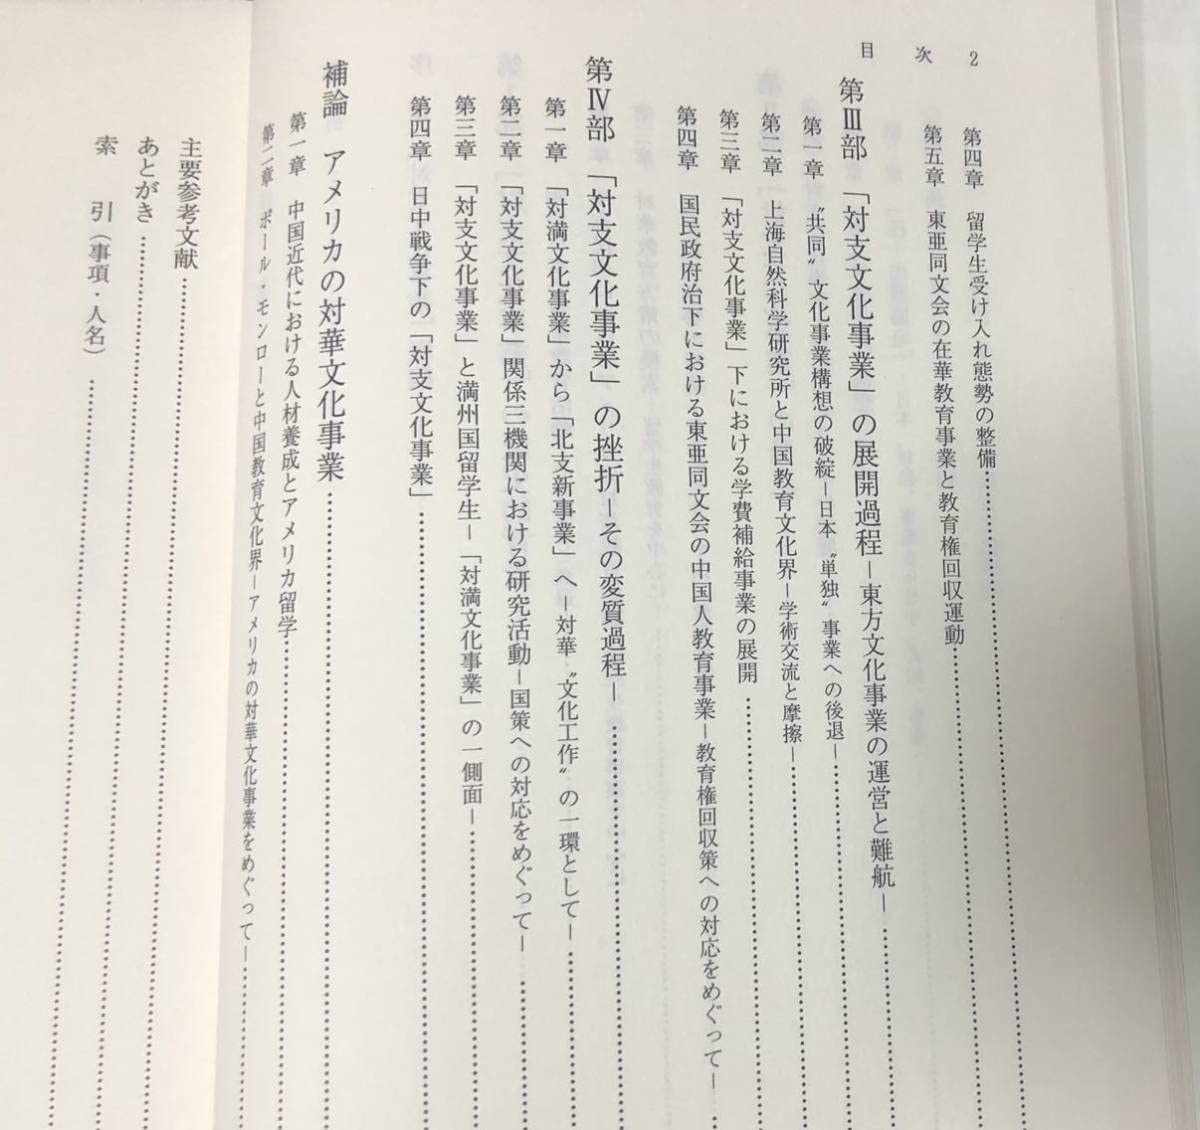 目次 2
第四章 留学生受け入れ態勢の整備
第五章 東亜同文会の在華教育事業と教育権回収運動
第Ⅲ部 「対支文化事業」の展開過程―東方文化事業の運営と難航―
第一章 〝共同〟文化事業構想の破綻―日本〝単独〟事業への後退―
第二章 上海自然科学研究所と中国教育文化界―学術交流と摩擦―
第三章 「対支文化事業」下における学費補給事業の展開
第四章 国民政府治下における東亜同文会の中国人教育事業―教育権回収策への対応をめぐって―
第Ⅳ部 「対支文化事業」の挫折―その変質過程―
第一章 「対満文化事業」から「北支新事業」へ―対華〝文化工作〟の一環として―
第二章 「対支文化事業」関係三機関における研究活動―国策への対応をめぐって―
第三章 「対支文化事業」と満州国留学生―「対満文化事業」の一側面―
第四章 日中戦争下の「対支文化事業」
補論 アメリカの対華文化事業
第一章 中国近代における人材養成とアメリカ留学
第二章 ポール・モンローと中国教育文化界―アメリカの対華文化事業をめぐって―
主要参考文献
あとがき
索引（事項・人名）